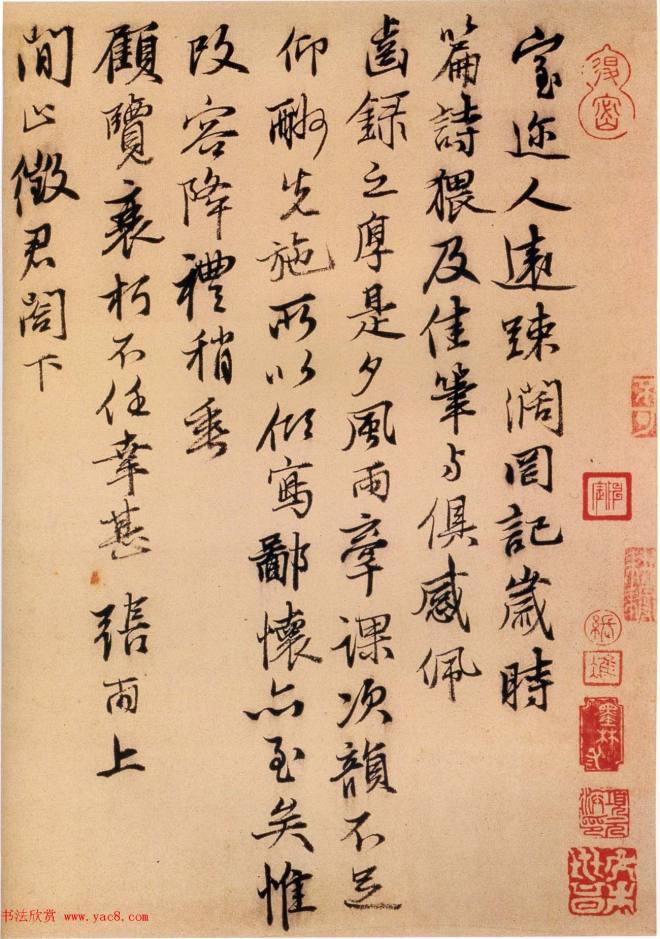 室迩人遠踈濶罔記歲時
篇詩猥及佳筆与俱感佩
齒録之厚是夕風雨牽課次韻不足
仰酬先施所以傾寫鄙懷亦至矣惟
改容降禮稍垂
顧覽衰朽不任幸甚 張雨上
閒止徵君閤下
墨林
項元汴印
书法欣赏 www.yac8.com